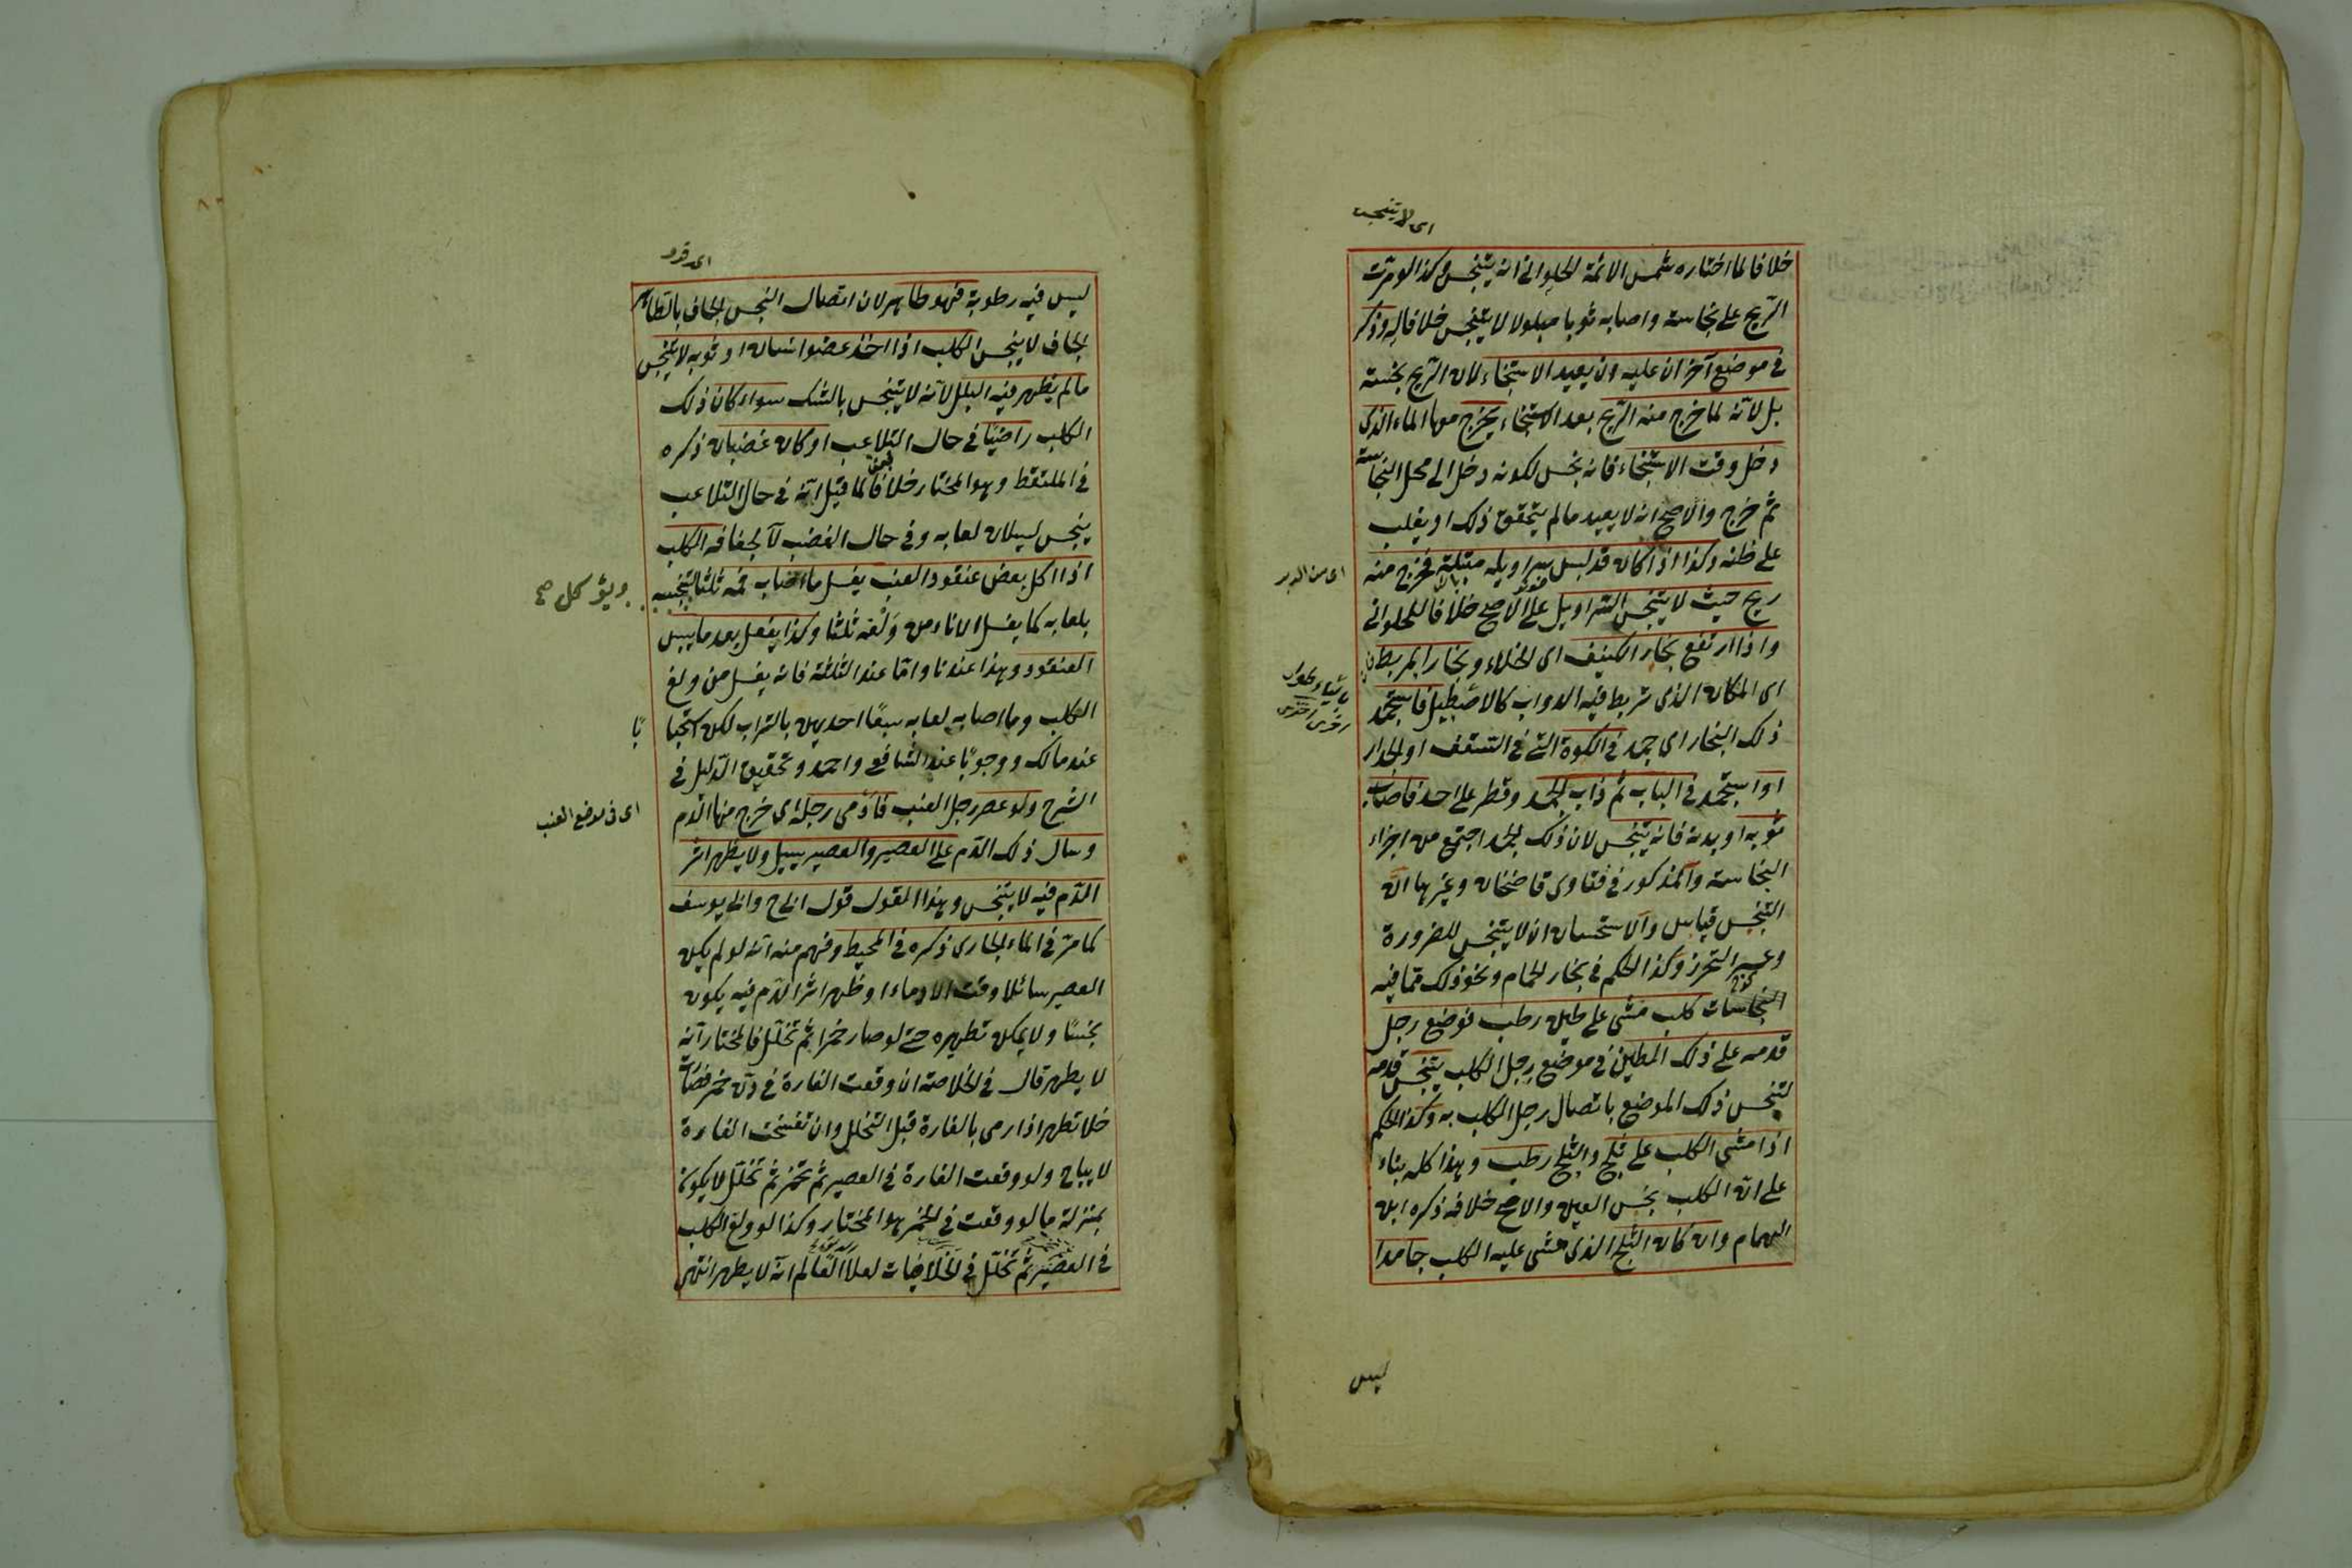 اى لا يتنجس
خلافا لما اختاره شمس الائمة الحلوانى انه يتنجس وكذا لو مرت
الريح على نجاسة واصابه ثوبا مبلولا لا يتنجس خلافا له وذكر
فى موضع آخر ان عليه ان يعيد الاستنجاء لا لان الريح نجسة
بل لانه لما خرج منه الريح بعد الاستنجاء يخرج معها الماء الذى
دخل وقت الاستنجاء فانه نجس لكونه دخل الى محل النجاسة
ثم خرج والاصح انه لا يعيد ما لم يتحقق ذلك او يغلب
على ظنه وكذا اذا كان قد لبس سراويله مبتلة فخرج منه
اى من الدبر
ريح حيث لا يتنجس السراويل على الاصح خلافا للحلوانى
واذا ارتفع بخار الكنيف اى الخلاء وبخار المربط
اى المكان الذى تربط فيه الدواب كالاصطبل فاستجمد
ذلك البخار اى جمد فى الكوة التى فى السقف او الجدار
او استجمد فى الباب ثم ذاب الجمد وقطر على احد فاصاب
ثوبه او بدنه فانه يتنجس لان ذلك الجمد اجتمع من اجزاء
النجاسة والمذكور فى فتاوى قاضخان وغيرها ان
التنجس قياس والاستحسان ان لا يتنجس للضرورة
وعسر التحرز وكذا الحكم فى بخار الحمام ونحو ذلك مما فيه
النجاسات كلب مشى على طين رطب فوضع رجل
قدمه على ذلك الطين فى موضع رجل الكلب يتنجس قدمه
لتنجس ذلك الموضع باتصال رجل الكلب به وكذا الحكم
اذا مشى الكلب على ثلج والثلج رطب وهذا كله بناء
على ان الكلب نجس العين والاصح خلافه ذكره ابن
الهمام وان كان الثلج الذى مشى عليه الكلب جامدا
ليس
ليس فيه رطوبة فهو طاهر لان اتصال النجس الجاف بالطاهر
الجاف لا ينجس الكلب اذا اخذ عضو انسان او ثوبه لا يتنجس
ما لم يظهر فيه البلل لانه لا يتنجس بالشك سواء كان ذلك
الكلب راضيا فى حال التلاعب او كان غضبان ذكره
فى الملتقط وهو المختار خلافا لما قيل انه فى حال التلاعب
ينجس لسيلان لعابه وفى حال الغضب لا لجفافه الكلب
اذا اكل بعض عنقود العنب يغسل ما اصاب فمه ثلثا لتنجسه
ويؤكل صح
بلعابه كما يغسل الاناء من ولغه ثلثا وكذا يفعل بعد ما يبس
العنقود وهذا عندنا واما عند الثلثة فانه يغسل من ولغ
الكلب وما اصابه لعابه سبعا احديهن بالتراب لكن استحبا
با
عند مالك ووجوبا عند الشافعى واحمد وتحقيق الدليل فى
الشرح ولو عصر رجل العنب فادمى رجله اى خرج منها الدم
اى فى موضع العنب
وسال ذلك الدم على العصير والعصير يسيل ولا يظهر اثر
الدم فيه لا يتنجس وهذا المقول قول ابى ح وابى يوسف
كما مر فى الماء الجارى ذكره فى المحيط وفهم منه انه لو لم يكن
العصير سائلا وقت الادماء او ظهر اثر الدم فيه يكون
نجسا ولا يمكن تطهيره حتى لو صار خمرا ثم تخلل فالمختار انه
لا يطهر قال فى الخلاصة ان وقعت الفارة فى دن خمر فصارت
خلا تطهر اذا رمى بالفارة قبل التخلل وان تفسخت الفارة
لا يباح ولو وقعت الفارة فى العصير ثم تخمر ثم تخلل لا يكون
بمنزلة ما لو وقعت فى الخمر هو المختار وكذا لو ولغ الكلب
فى العصير ثم تخلل فى الخلاصيات لعلا العالم انه لا يطهر انتهى